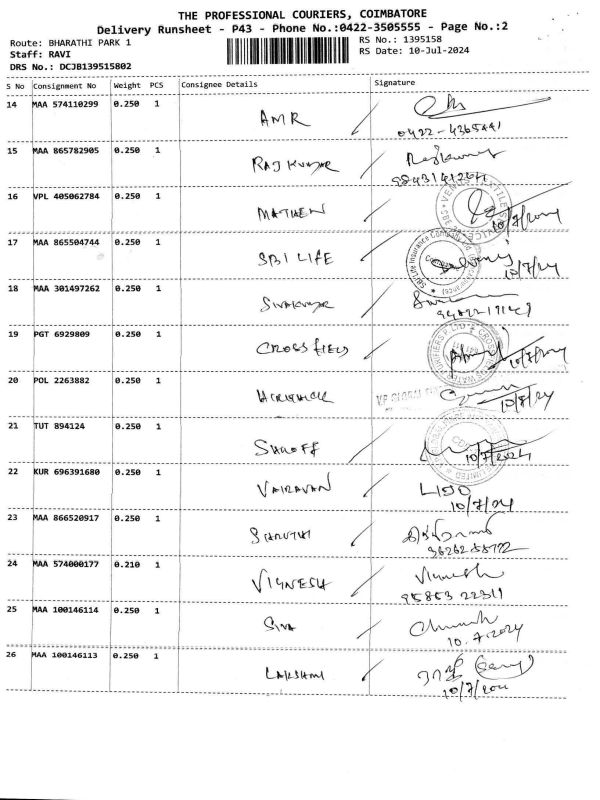 THE PROFESSIONAL COURIERS, COIMBATORE
Delivery Runsheet - P43 - Phone No.:0422-3505555 - Page No.:2
Route: BHARATHI PARK 1 RS No.: 1395158
Staff: RAVI RS Date: 10-Jul-2024
DRS No.: DCJB139515802
S No Consignment No Weight PCS Consignee Details Signature
14 MAA 574110299 0.250 1 AMR
0422-4365441
15 MAA 865782905 0.250 1 RAJKUMAR
16 VPL 405062784 0.250 1 MATHEW
10/7/2024
17 MAA 865504744 0.250 1 SBI LIFE
10/7/24
18 MAA 301497262 0.250 1 SIVAKUMAR
19 PGT 6929809 0.250 1 CROSSFIELD
10/7/2024
20 POL 2263882 0.250 1
10/7/24
21 TUT 894124 0.250 1 SHROFF
10/7/2024
22 KUR 696391680 0.250 1 VAIRAVAN
10/7/24
23 MAA 866520917 0.250 1 SHRUTHI
24 MAA 574000177 0.210 1 VIGNESH Vignesh
95853 22311
25 MAA 100146114 0.250 1 SIVA
10.7.2024
26 MAA 100146113 0.250 1 LAKSHMI